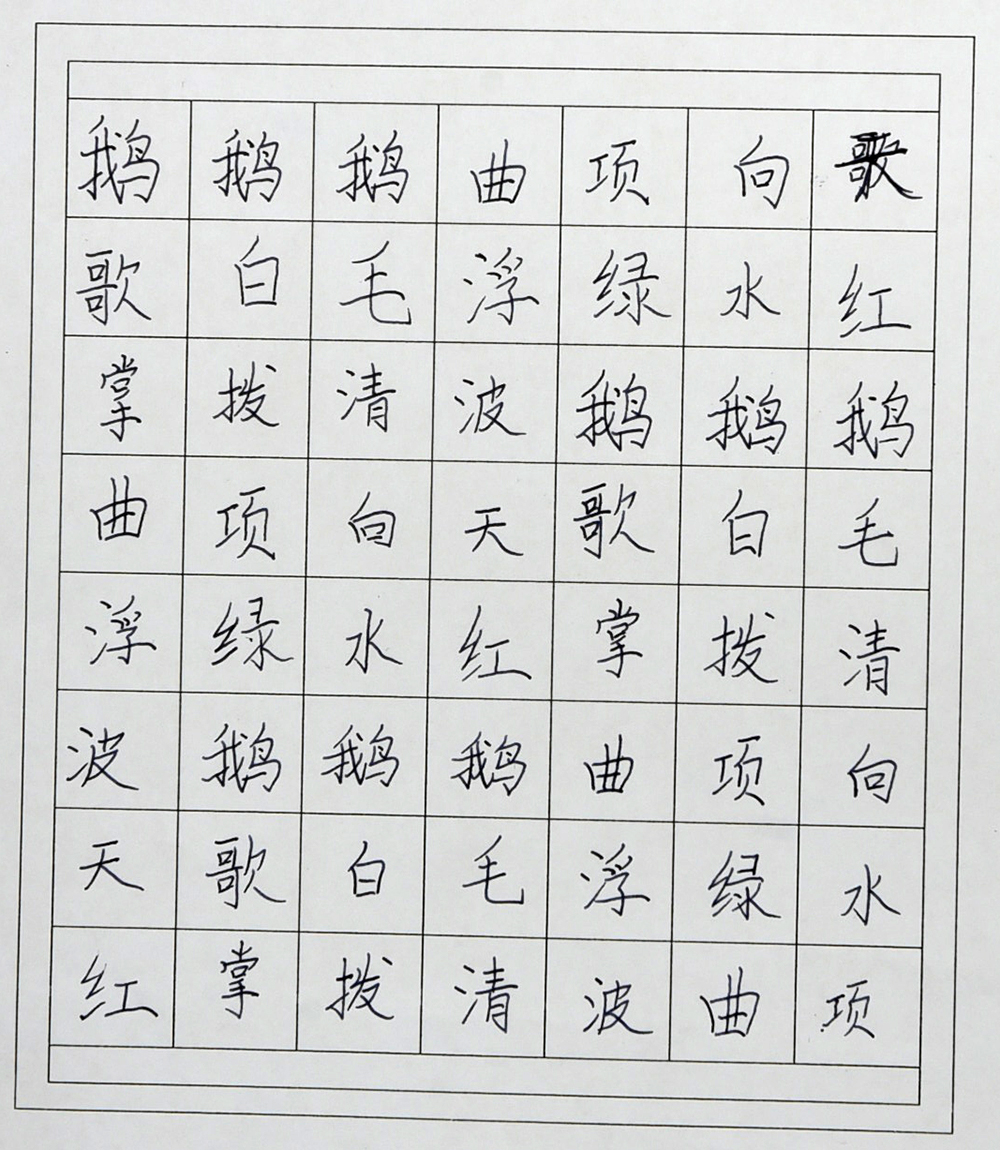 鹅鹅鹅曲项向
歌白毛浮绿水红
掌拨清波鹅鹅鹅
曲项向天歌白毛
浮绿水红掌拨清
波鹅鹅鹅曲项向
天歌白毛浮绿水
红掌拨清波曲项